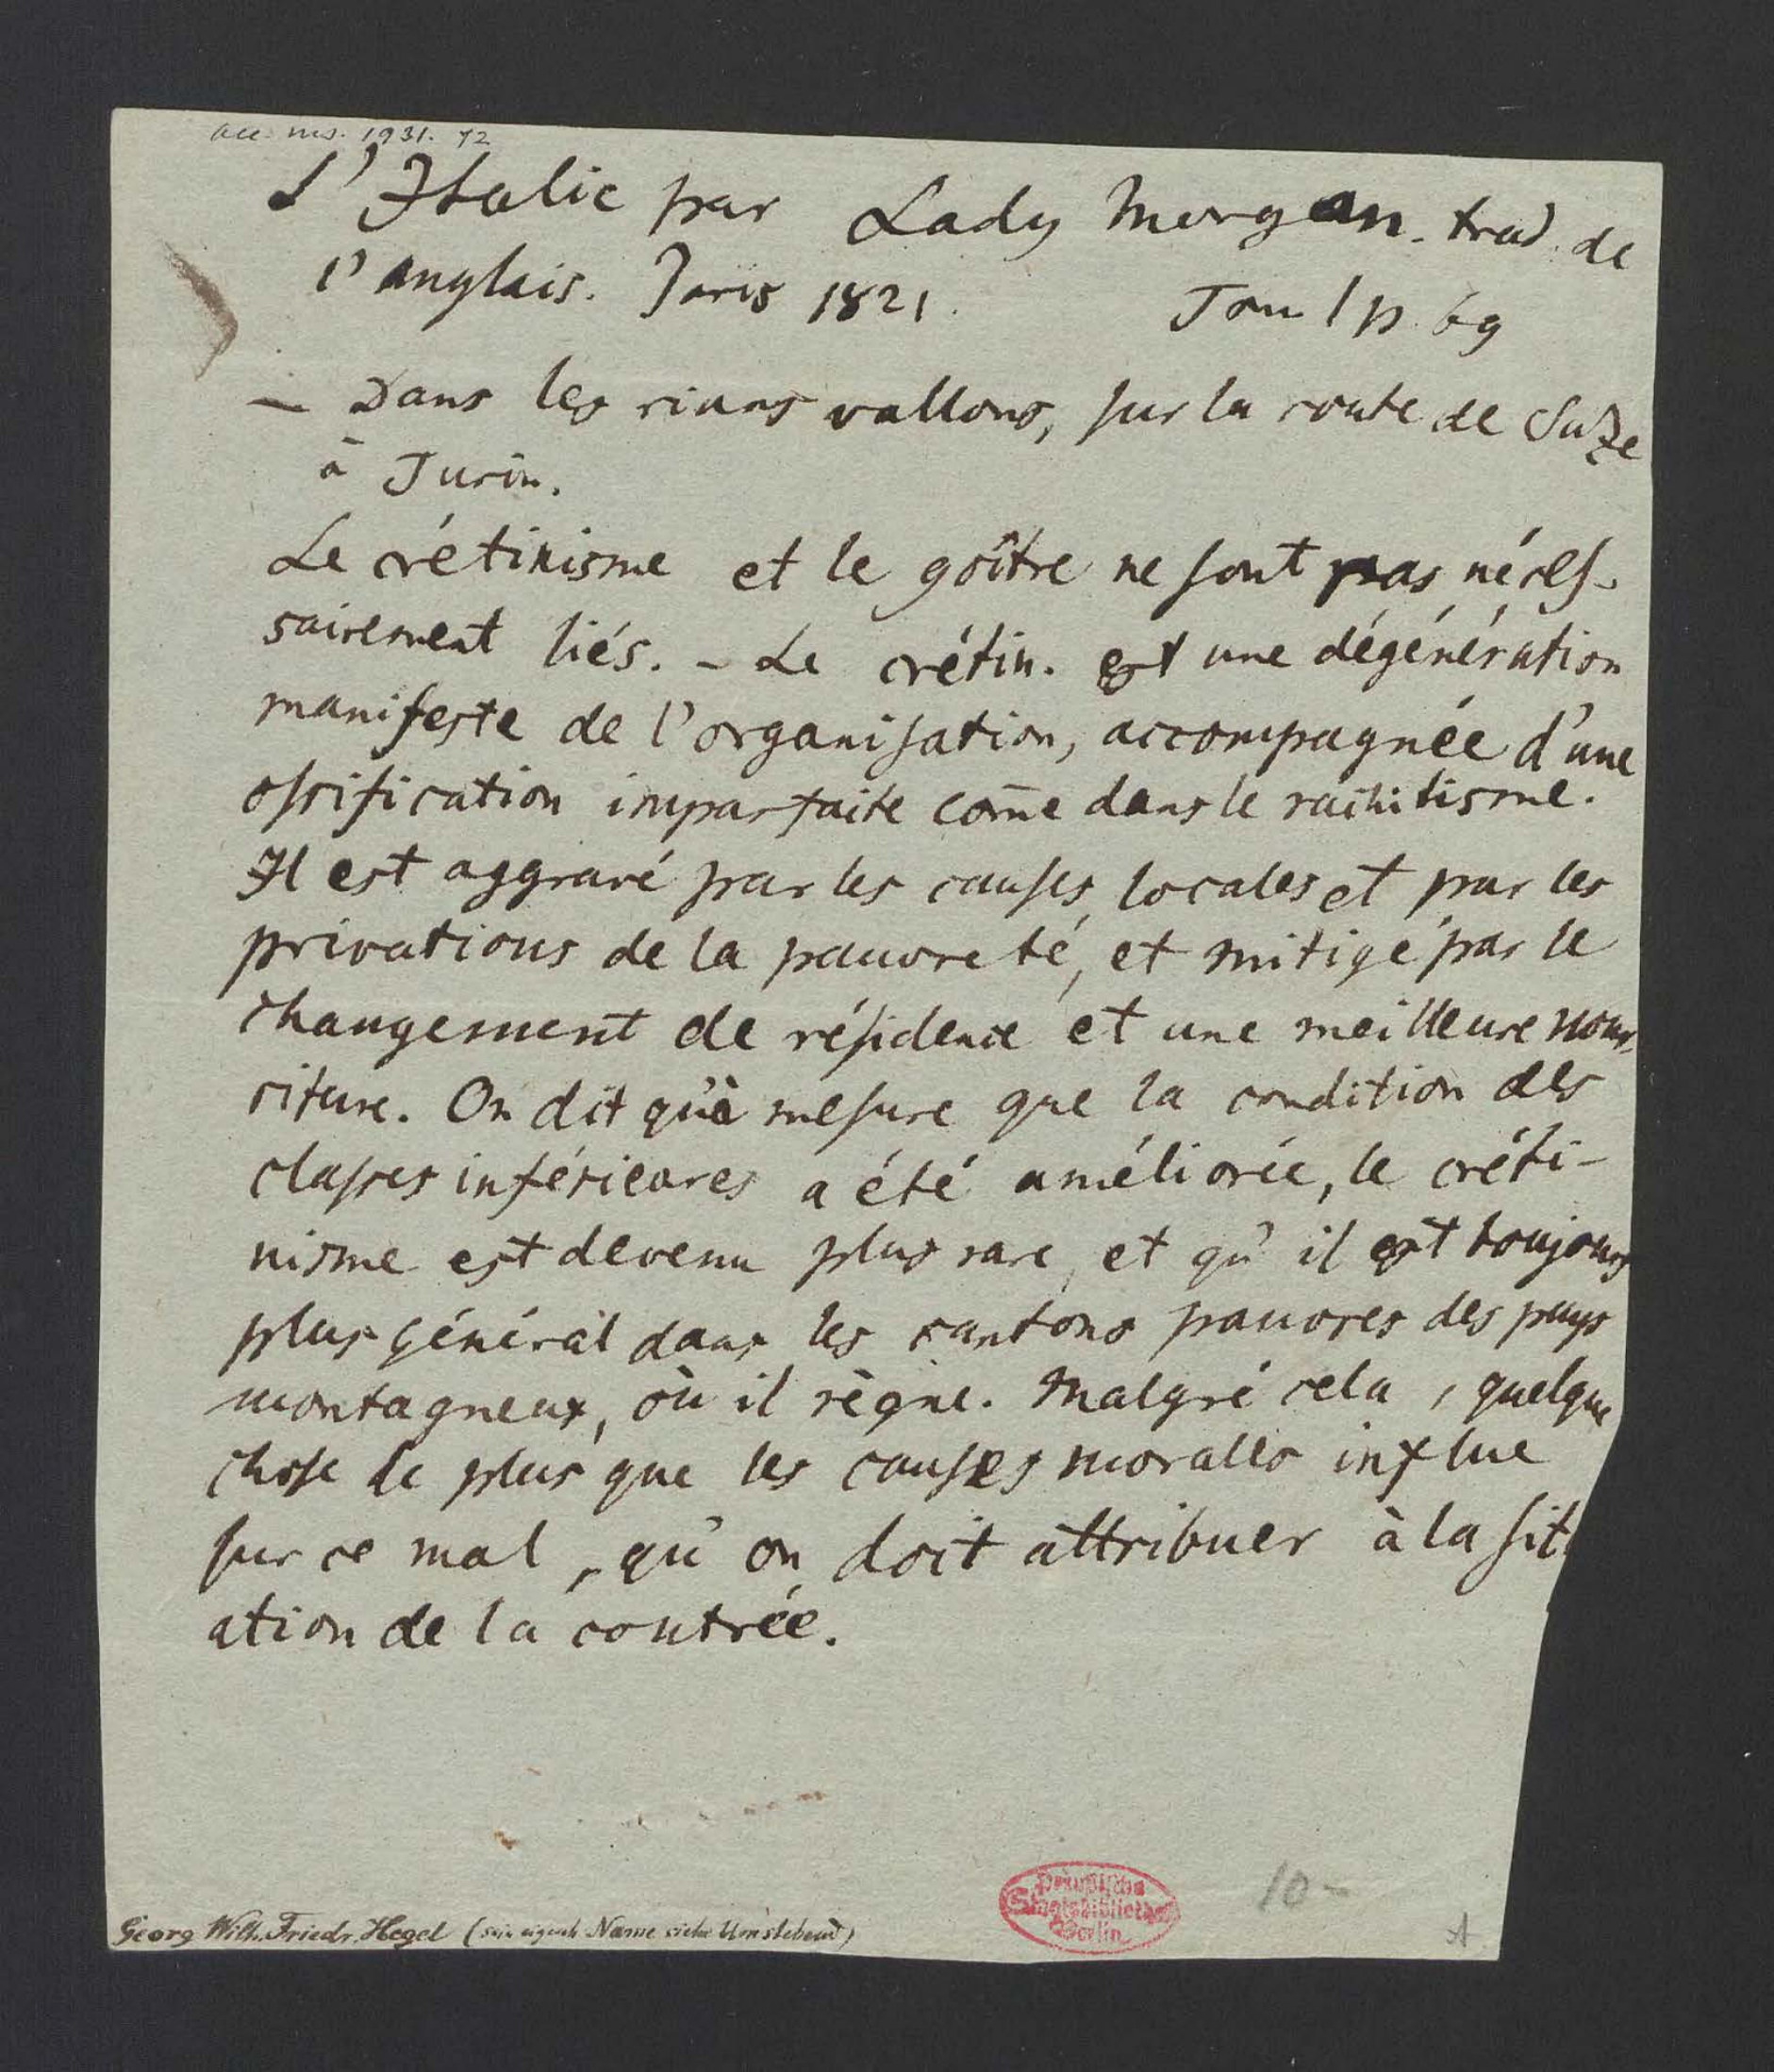 acc. ms. 1931. 72
L'Italie par Lady Morgan. trad. de
l'anglais. Paris 1821. Tom I p. 69
– Dans les rians vallons, sur la route de Suze
à Turin.
Le crétinisme et le goître ne sont pas néces-
sairement liés. – Le crétin. est une dégénération
manifeste de l'organisation, accompagnée d'une
ossification imparfaite com̄e dans le rachitisme.
Il est aggravé par les causes locales et par les
privations de la pauvreté, et mitigé par le
changement de résidence et une meilleure nour-
riture. On dit qu'à mesure que la condition des
classes inférieures a été améliorée, le créti-
nisme est devenu plus rare, et qu'il est toujours
plus général dans les cantons pauvres des pays
montagneux, où il règne. Malgré cela, quelque
chose de plus que les causes morales influe
sur ce mal, qu'on doit attribuer à la situ
ation de la contrée.
Preußische
Staatsbibliothek
Berlin
10 –
A
Georg Wilh. Friedr. Hegel (sein eigenh. Name siehe Umstehend)